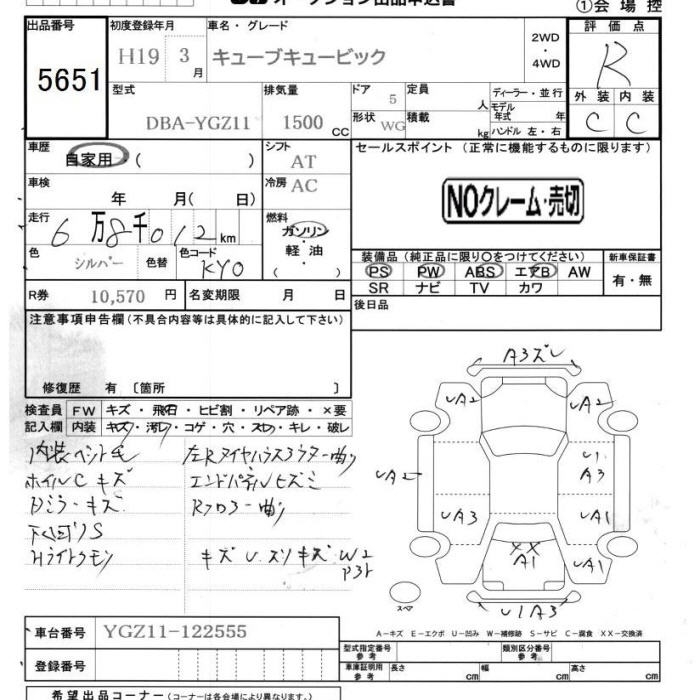 オークション出品申込書
①会場控
出品番号 初度登録年月 車名・グレード 2WD・4WD 評価点
5651 H19 3月 キューブキュービック R
型式 排気量 ドア 定員 ディーラー・並行 外装 内装
DBA-YGZ11 1500CC 5 人 モデル年式 年 C C
形状 WG 積載 kg ハンドル 左・右
車歴 シフト セールスポイント (正常に機能するものに限ります)
自家用 ( ) AT
車検 冷房 AC NOクレーム・売切
年 月( 日)
走行 燃料
6万8千012km ガソリン・軽油・( )
色 シルバー 色替 色コード KY0
装備品(純正品に限り○をつけてください) 新車保証書
PS PW ABS エアB AW 有・無
SR ナビ TV カワ
R券 10,570円 名変期限 月 日 後日品
注意事項申告欄(不具合内容等は具体的に記入して下さい)
修復歴 有 〔箇所 〕
検査員 FW キズ・飛石・ヒビ割・リペア跡・×要
記入欄 内装 キズ・汚れ・コゲ・穴・スレ・キレ・破レ
ホイルC キズ
エンドパネルヒズミ
Dミラーキズ
下回りS
Hライトクモリ
A3ズレ
UA2 UA2
U1
A3
UA2
UA3 UA1
XX
A1 UA1
スペア
U1A3
A-キズ E-エクボ U-凹み W-補修跡 S-サビ C-腐食 XX-交換済
車台番号 YGZ11-122555
型式指定番号 参考 類別区分番号 参考
登録番号 車庫証明用 参考 長さ cm 幅 cm 高さ cm
希望出品コーナー(コーナーは各会場により異なります。)